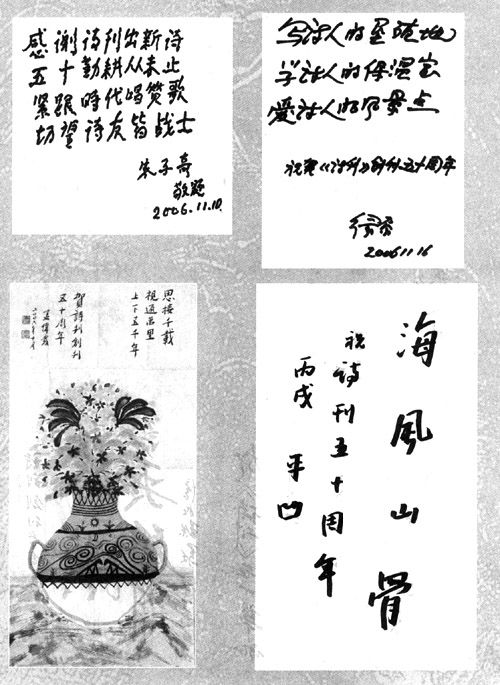 感谢诗刊出新诗
五十勤耕从未止
紧跟時代唱赞歌
切望诗友皆战士
朱子奇
敬题
2006.11.10.
写诗人的
学诗人的保温室
爱诗人的风景点
祝贺《诗刊》创刊五十周年
2006 11 16
思接千载
視通萬里
上下五千年
賀詩刊創刊
五十周年
孟偉哉
海風山骨
祝诗刊五十周年
丙戌
平凹